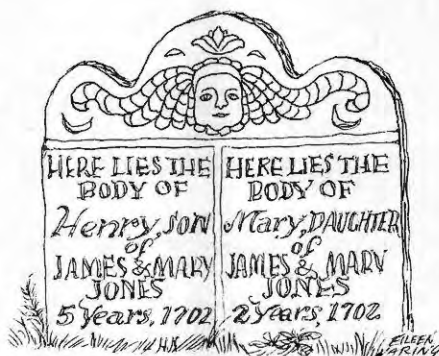 HERE LIES THE
BODY OF
Henry, SON
of
JAMES & MARY
JONES
5 Years, 1702
HERE LIES THE
BODY OF
Mary, DAUGHTER
of
JAMES & MARY
JONES
2 Years, 1702
EILEEN
WARING